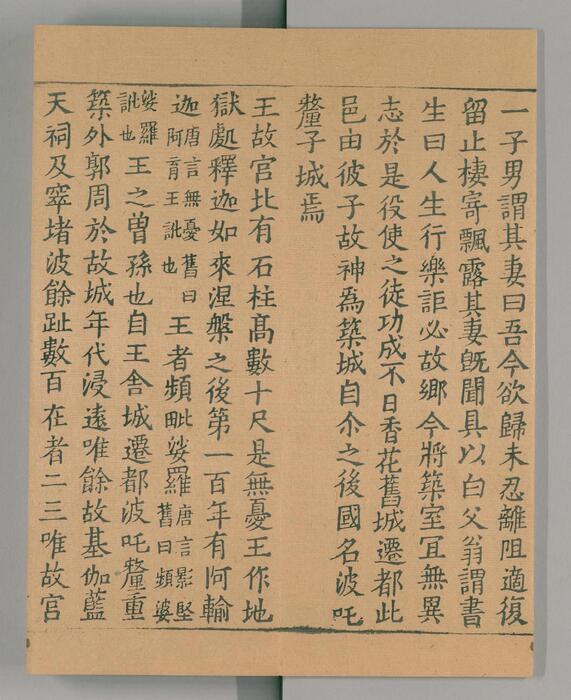 一子男謂其妻曰吾今欲歸未忍離阻適復
留止棲寄飄露其妻旣聞具以白父翁謂書
生曰人生行樂詎必故鄉今將築室冝無異
志於是役使之徒功成不日香花舊城遷都此
邑由彼子故神爲築城自尒之後國名波吒
釐子城焉
王故宮北有石柱髙數十尺是無憂王作地
獄處釋迦如來涅槃之後第一百年有阿輸
迦唐言無憂舊曰阿育王訛也王者頻毗娑羅唐言影堅舊曰頻婆
娑羅訛也王之曾孫也自王舍城遷都波吒釐重
築外郭周於故城年代浸遠唯餘故基伽藍
天祠及窣堵波餘趾數百在者二三唯故宮